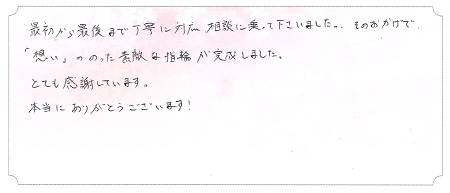 最初から最後まで丁寧に対応 相談に乗って下さいました。そのおかげで、
「想い」ののった素敵な指輪が完成しました。
とても感謝しています。
本当にありがとうございます！